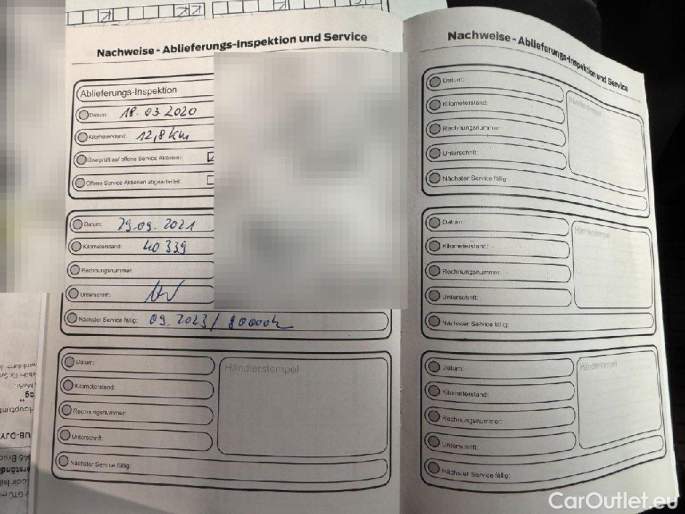 Nachweise - Ablieferungs-Inspektion und Service
Ablieferungs-Inspektion
Datum: 18.03.2020
Kilometerstand: 12,8 km
Überprüft auf offene Service Aktionen:
Offene Service Aktionen abgearbeitet:
Datum: 29.09.2021
Kilometerstand: 40 339
Rechnungsnummer:
Unterschrift:
Nächster Service fällig: 09.2023/ 80000k
Datum:
Kilometerstand:
Rechnungsnummer:
Unterschrift:
Nächster Service fällig:
Händlerstempel
Nachweise - Ablieferungs-Inspektion und Service
Datum:
Kilometerstand:
Rechnungsnummer:
Unterschrift:
Nächster Service fällig:
Händlerstempel
Datum:
Kilometerstand:
Rechnungsnummer:
Unterschrift:
Nächster Service fällig:
Händlerstempel
Datum:
Kilometerstand:
Rechnungsnummer:
Unterschrift:
Nächster Service fällig:
Händlerstempel
CarOutlet.eu